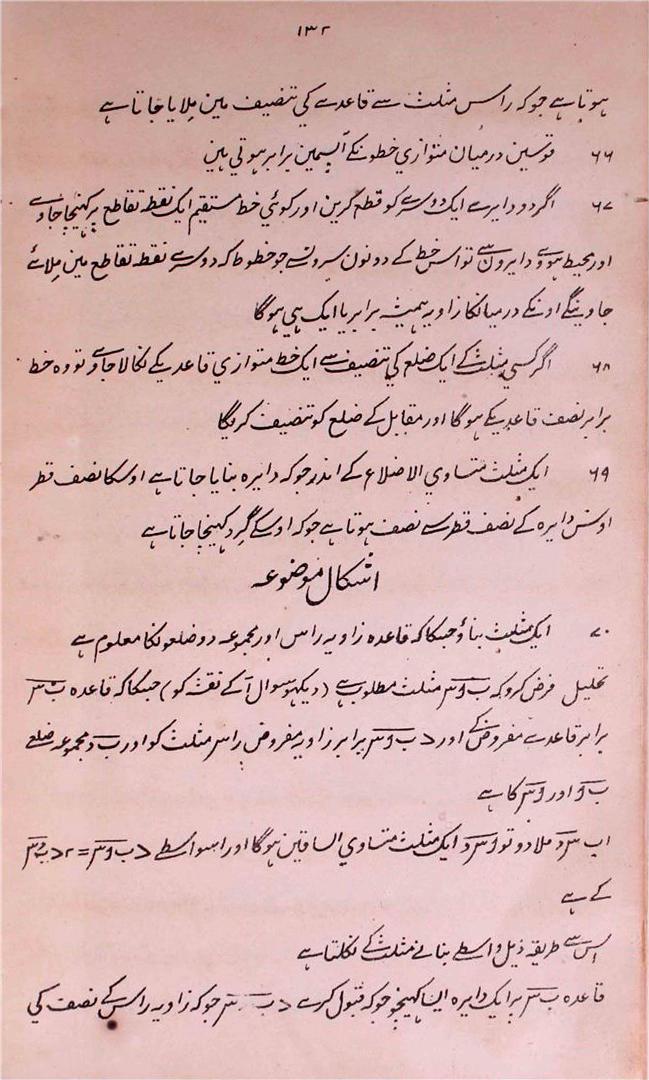 ۱۳۲
ہوتا ہے جو کہ راس مثلث سے قاعدے کي تنصیف مین ملایا جاتا ہے
۶۶ قوسین درمیان متوازي خطونکے آپسمین برابر ہوتي ہین
۶۷ اگر دو دایرے ایک دوسرے کو قطع کرین اور کوئي خط مستقیم ایک نقطہ تقاطع پر کہینچا جاوے
اور محیط ہووے دایرون سے تو اس خط کے دونون سرونسے جو خطوط کہ دوسرے نقطہ تقاطع مین ملائے
جاوینگے اونکے درمیانکا زاویہ ہمیشہ برابر یا ایک ہي ہوگا
۶۸ اگر کسي مثلث کے ایک ضلع کي تنصیف سے ایک خط متوازي قاعدیکے نکالا جاوے تو وہ خط
برابر نصف قاعدیکے ہوگا اور مقابل کے ضلع کو تنصیف کریگا
۶۹ ایک مثلث متساوي الاضلاع کے اندر جو کہ دایرہ بنایا جاتا ہے اوسکا نصف قطر
اوس دایرہ کے نصف قطر سے نصف ہوتا ہے جو کہ اوسکے گرد کہینچا جاتا ہے
اشکال موضوعہ
۷۰ ایک مثلث بناؤ جسکا کہ قاعدہ زاویہ راس اور مجموعہ دو ضلعونکا معلوم ہے
تحلیل فرض کرو کہ ب و س مثلث مطلوب ہے (دیکہو سوال آ کے نقشہ کو) جسکا کہ قاعدہ ب س
برابر قاعدے مفروض کے اور > ب و س برابر زاویہ مفروض راس مثلث کو اور ب د مجموعہ ضلع
ب و اور و س کا ہے
اب س د ملا دو تو و س د ایک مثلث متساوي الساقین ہوگا اور اسواسطے > ب و س = ۲ > ب د س
کے ہے
اس سے طریقہ ذیل واسطے بنانے مثلث کے نکلتا ہے
قاعدہ ب س پر ایک دایرہ ایسا کہینچو جو کہ قبول کرے > ب س جو کہ زاویہ راس کے نصف کي